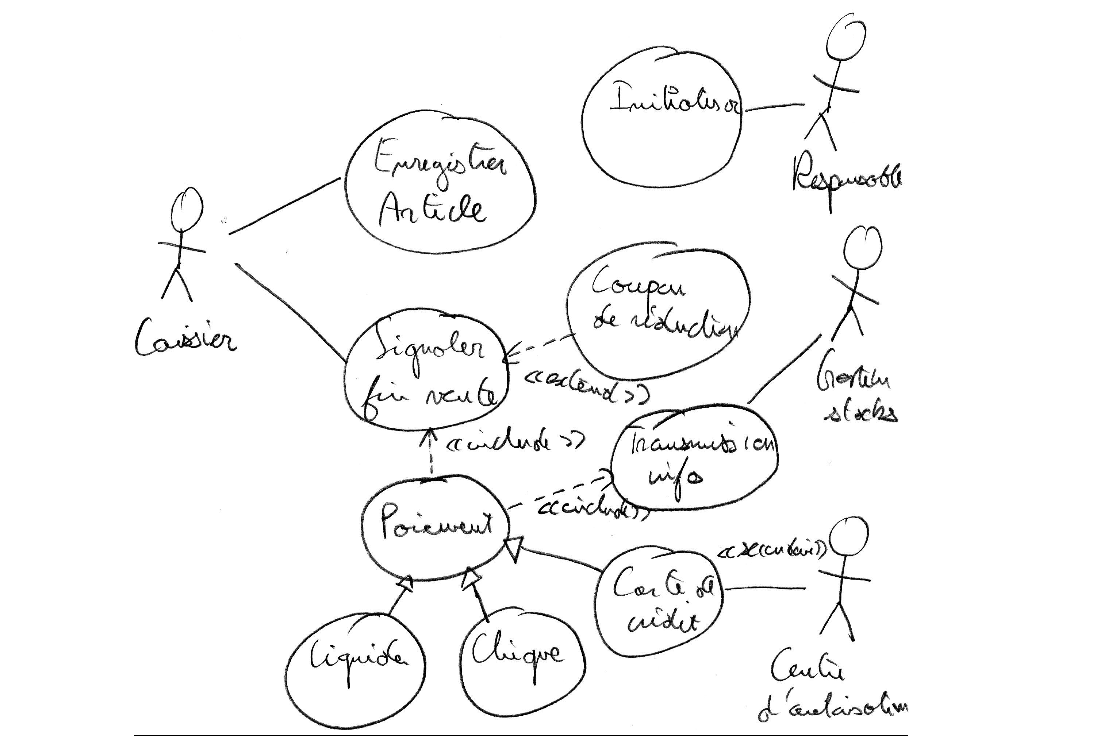 Initialiser
Enregistrer
Article
Responsable
Coupon
de réduction
Caissier
Signaler
fin vente
<<extend>>
Gestion
stocks
<<include>>
Transmission
info
Paiement
<<include>>
<<secondaire>>
Carte de
crédit
Liquide
Chèque
Centre
d'autorisation